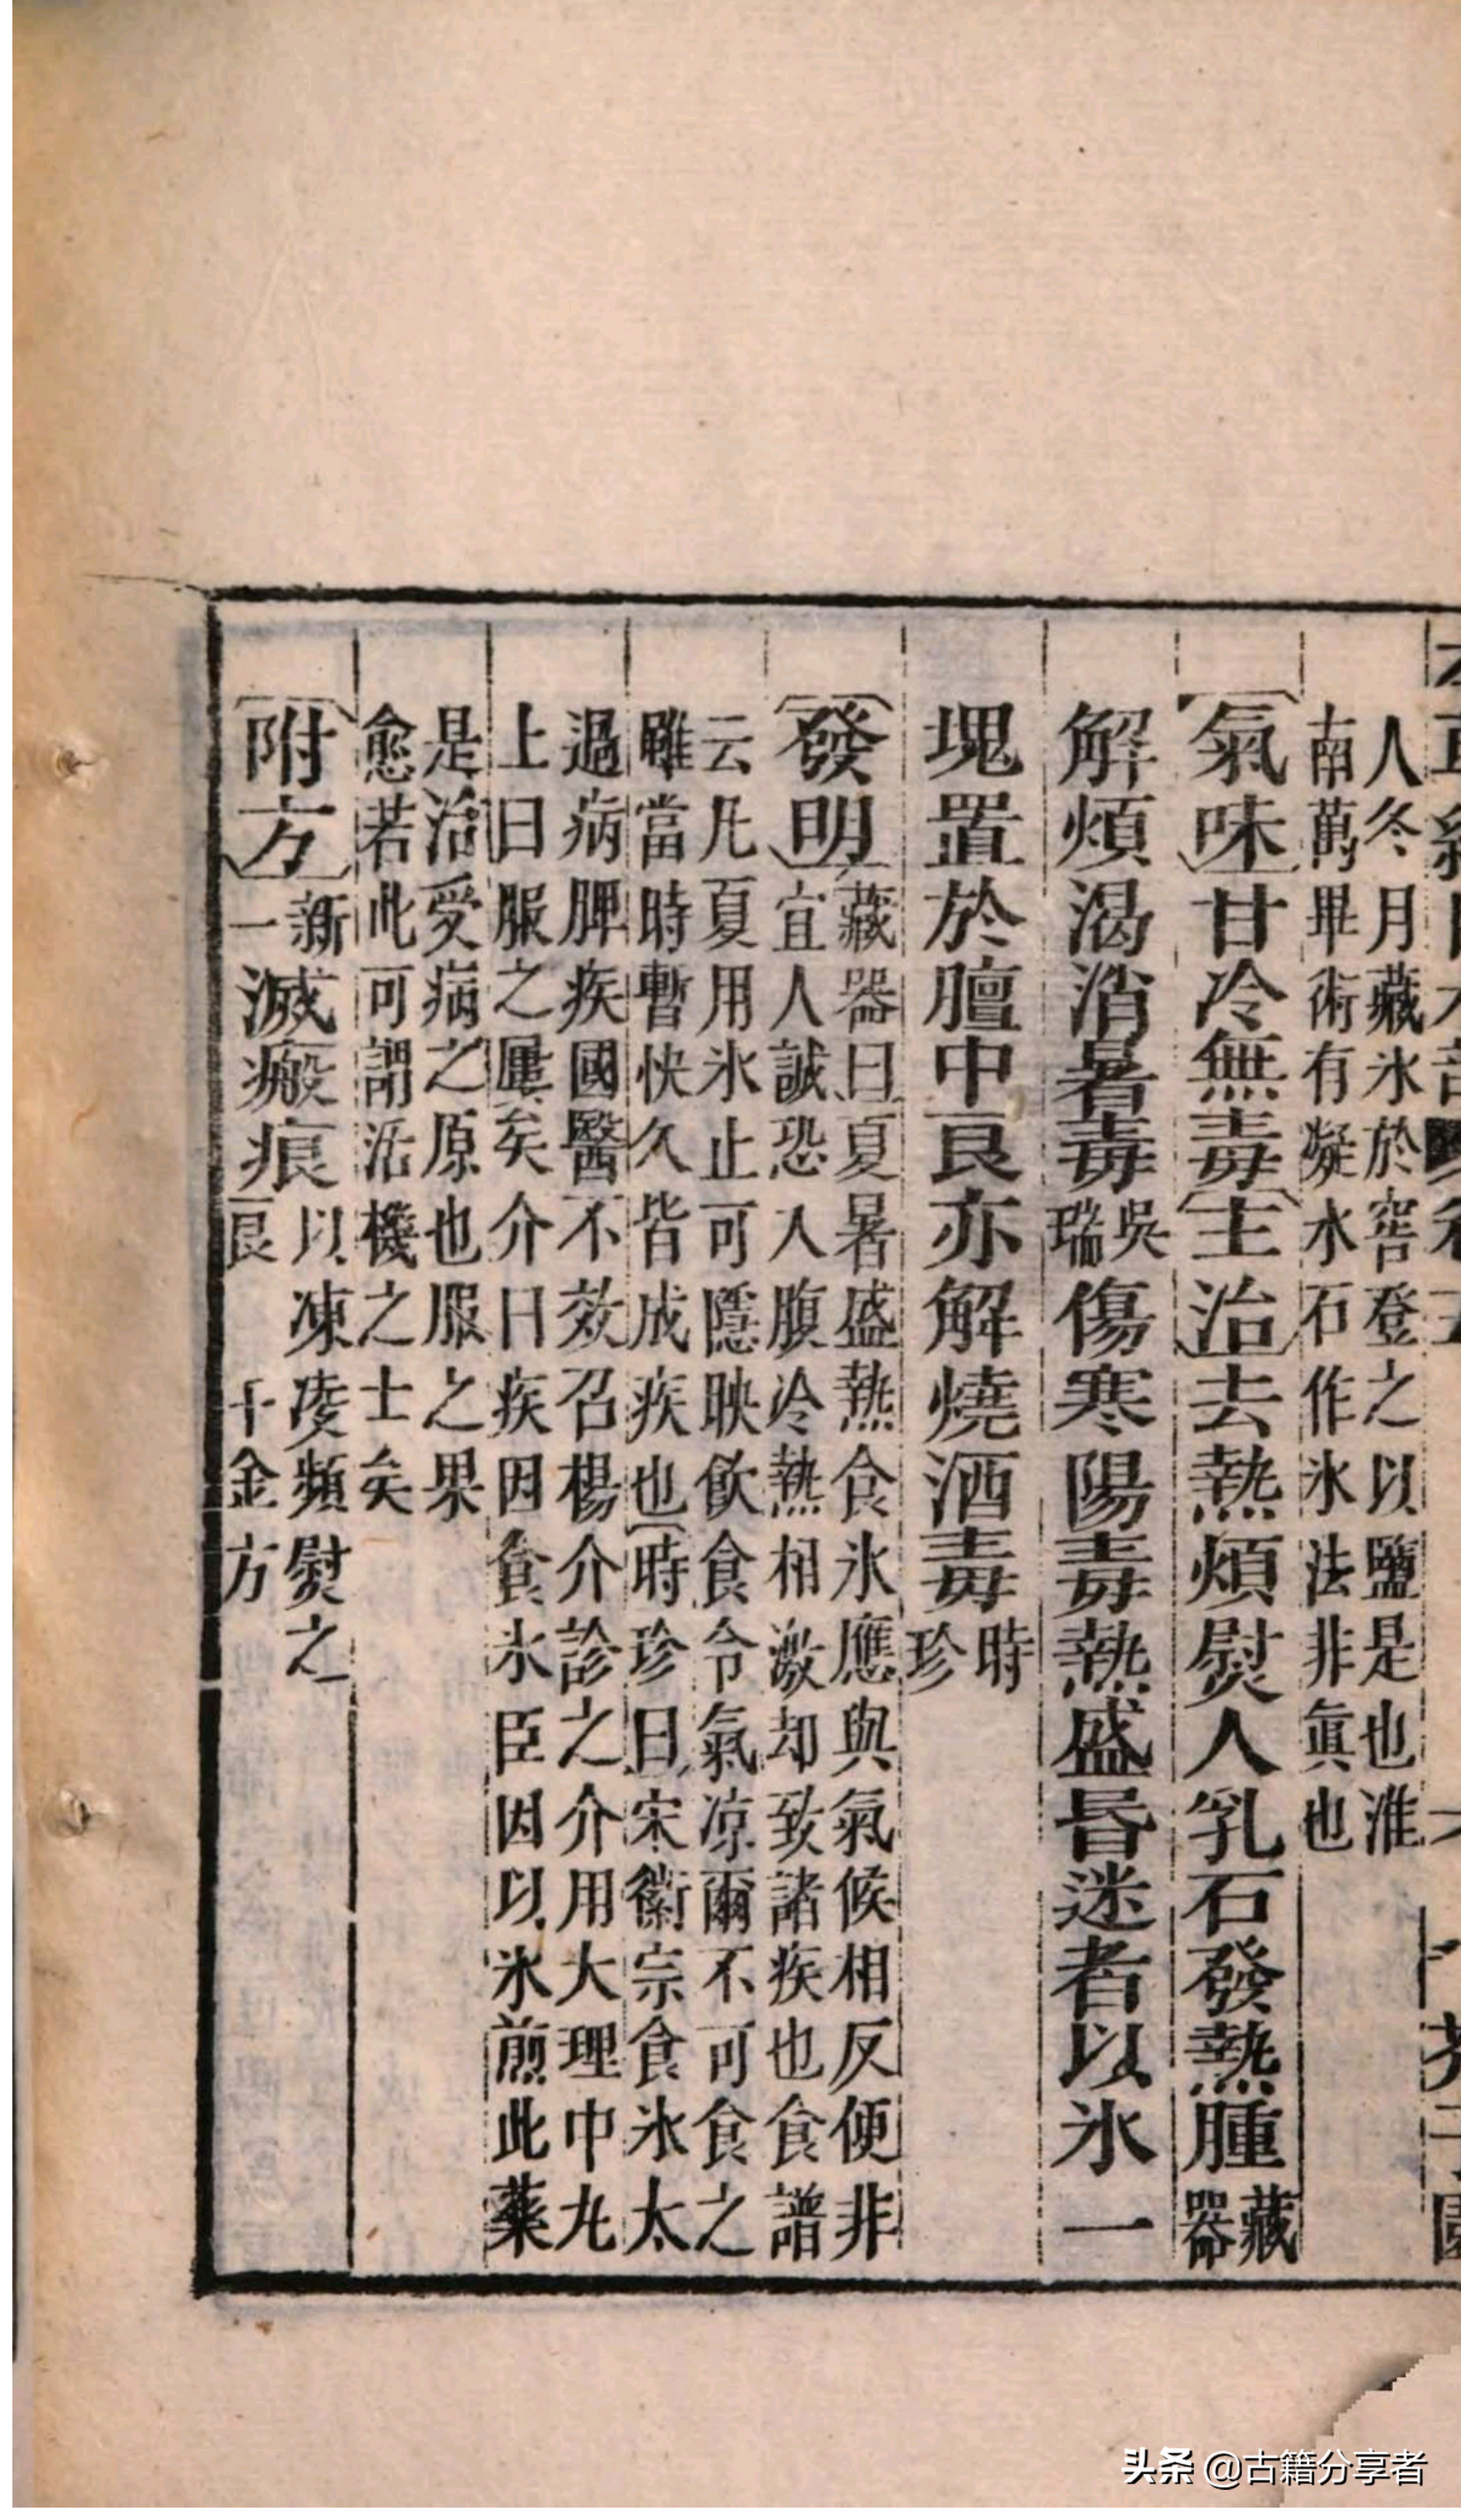 人冬月藏氷於窖登之以鹽是也淮
南萬畢術有凝水石作氷法非眞也
[氣味]甘冷無毒[主治]去熱煩熨人乳石發熱腫藏器
解煩渴消暑毒吳瑞傷寒陽毒熱盛昏迷者以氷一
塊置於膻中良亦解燒酒毒時珍
[發明]藏器曰夏暑盛熱食氷應與氣候相反便非
宜人誠恐入腹冷熱相激却致諸疾也食譜
云凡夏用氷止可隱映飲食令氣凉爾不可食之
雖當時暫快久皆成疾也[時珍曰]宋徽宗食氷太
過病脾疾國醫不效召楊介診之介用大理中丸
上曰服之屢矣介曰疾因食氷臣因以氷煎此藥
是治受病之原也服之果
愈若此可謂活機之士矣
[附方]新一滅瘢痕以凍凌頻熨之良千金方
头条 @古籍分享者